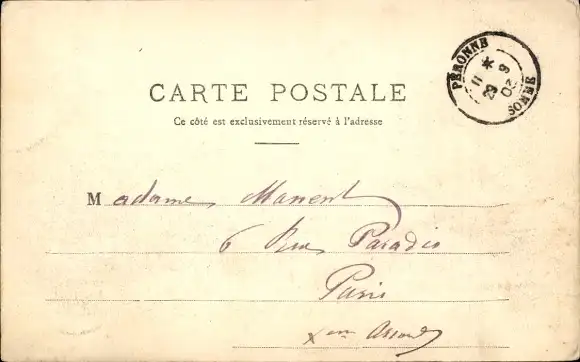 PÉRONNE
SOMME
CARTE POSTALE
Ce côté est exclusivement réservé à l'adresse
Madame
6 Rue Paradis
Paris
Xème Arrond